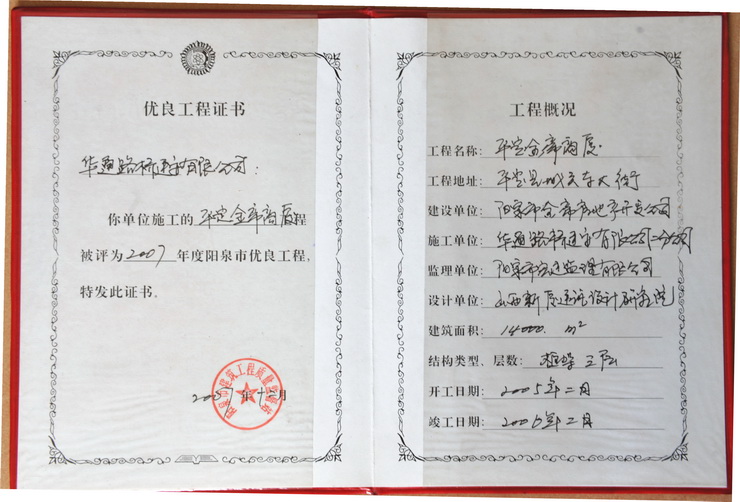 优良工程证书
华通路桥建设有限公司:
你单位施工的平定金库商厦程
被评为2007年度阳泉市优良工程,
特发此证书。
2007年十二月
工程概况
工程名称: 平定金库商厦
工程地址: 平定县城关东大街
建设单位: 阳泉市金库房地产开发公司
施工单位: 华通路桥建设有限公司二分公司
监理单位: 阳泉市宏达监理有限公司
设计单位: 山西新厦建筑设计研究院
建筑面积: 14000. m²
结构类型、层数: 框架 三层
开工日期: 2005年二月
竣工日期: 2006年二月